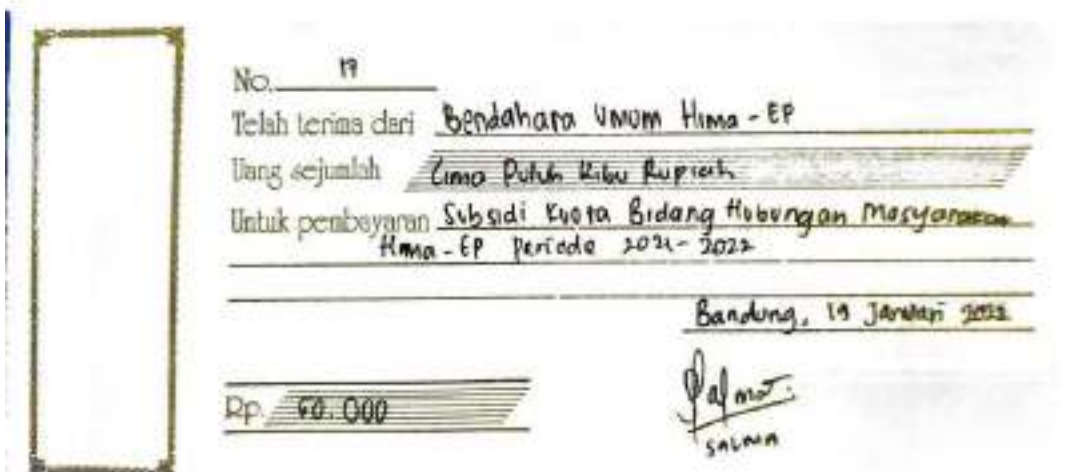 No. 19
Telah terima dari Bendahara Umum Hima - EP
Uang sejumlah Lima Puluh Ribu Rupiah
Untuk pembayaran Subsidi Kuota Bidang Hubungan Masyarakat
Hima - EP periode 2021 - 2022
Bandung, 19 Januari 2022
Rp. 50.000
SALMA